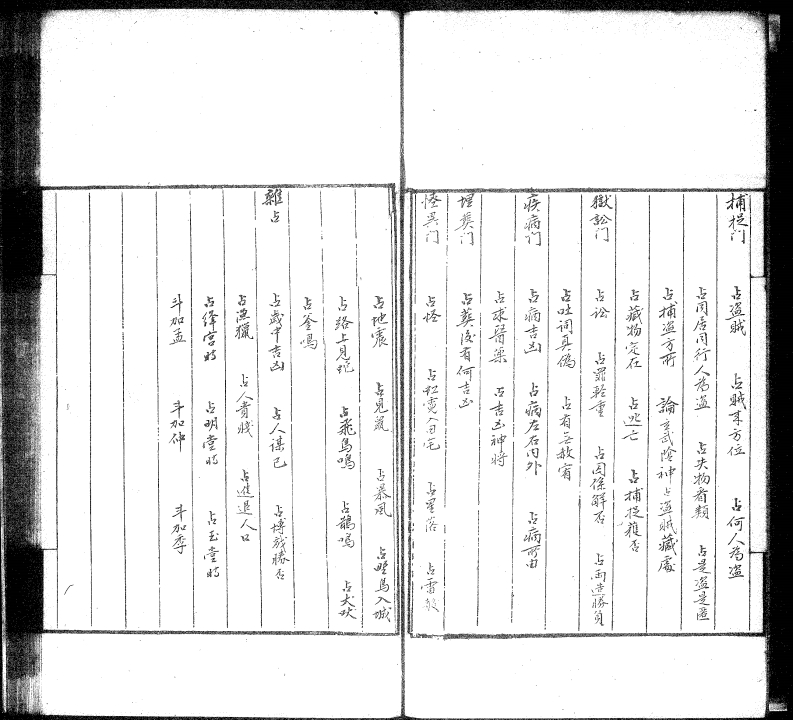 捕捉门 占盗贼 占贼来方位 占何人為盗
占同居同行人為盗 占失物看類 占是盗是匪
占捕盗方所 論玄武陰神占盗贼藏處
占藏物定在 占逃亡 占捕捉獲否
獄訟门 占訟 占罪輕重 占囚係解否 占両造勝負
占吐词真偽 占有無赦宥
疾病门 占病吉凶 占病左右内外 占病所由
占求醫藥 占吉凶神將
埋塟门 占塟後有何吉凶
怪異门 占怪 占狂賓入宅 占星落 占雷殺
占地震 占見 占暴風 占野鳥入城
占路上見蛇 占飛鳥鳴 占鵲鳴 占犬吠
占釜鳴
雜占 占歲中吉凶 占人谋己 占博戏勝否
占漁獵 占人貴賤 占進退人口
占绛宫時 占明堂時 占玉堂時
斗加孟 斗加仲 斗加季